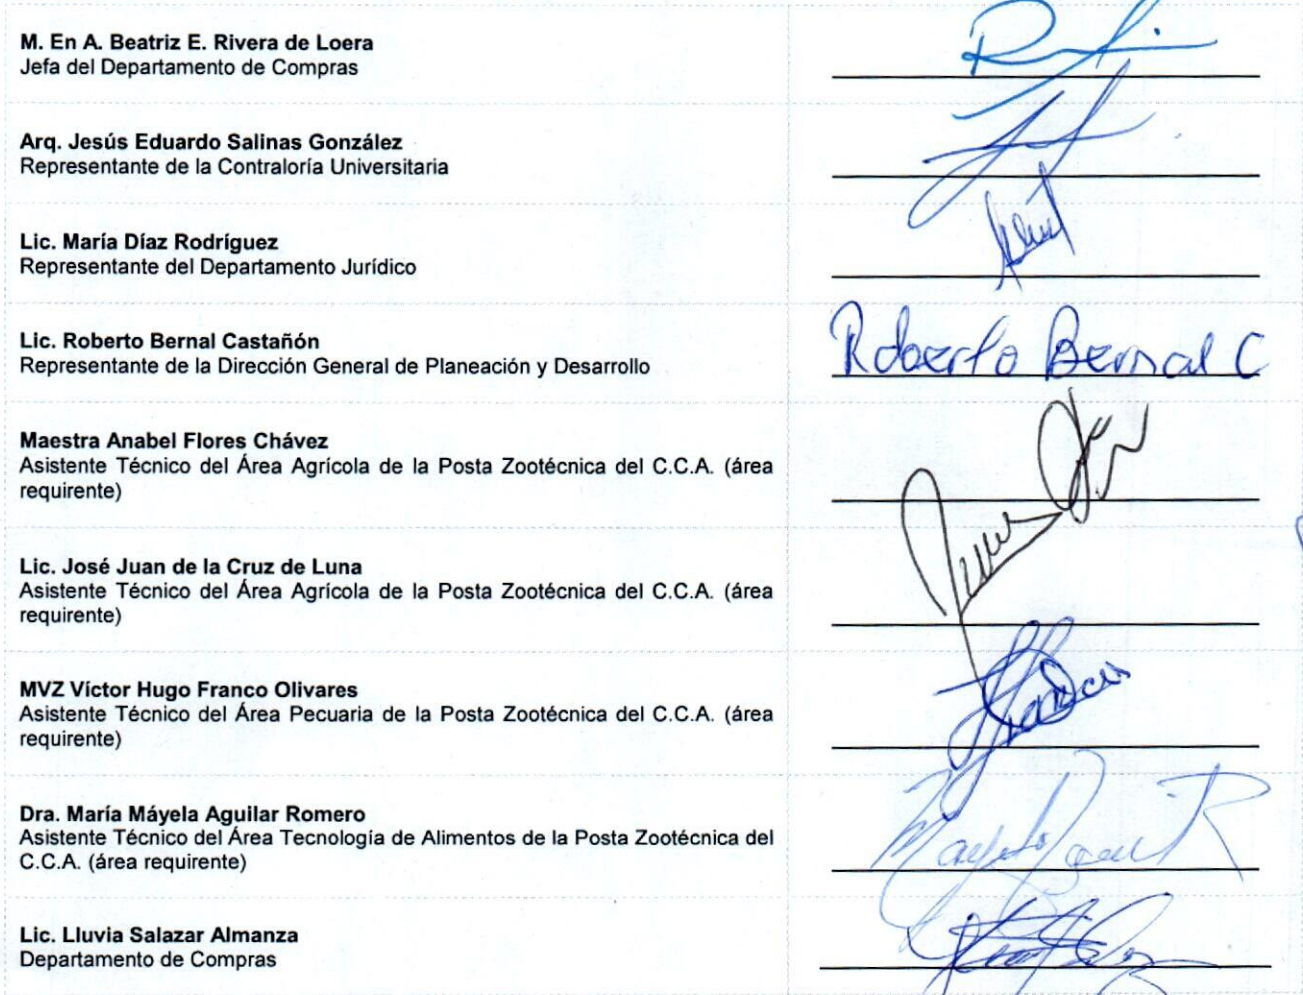 M. En A. Beatriz E. Rivera de Loera
Jefa del Departamento de Compras
Arq. Jesús Eduardo Salinas González
Representante de la Contraloría Universitaria
Lic. María Díaz Rodríguez
Representante del Departamento Jurídico
Lic. Roberto Bernal Castañón
Representante de la Dirección General de Planeación y Desarrollo
Roberto Bernal C
Maestra Anabel Flores Chávez
Asistente Técnico del Área Agrícola de la Posta Zootécnica del C.C.A. (área
requirente)
Lic. José Juan de la Cruz de Luna
Asistente Técnico del Área Agrícola de la Posta Zootécnica del C.C.A. (área
requirente)
MVZ Víctor Hugo Franco Olivares
Asistente Técnico del Área Pecuaria de la Posta Zootécnica del C.C.A. (área
requirente)
Dra. María Máyela Aguilar Romero
Asistente Técnico del Área Tecnología de Alimentos de la Posta Zootécnica del
C.C.A. (área requirente)
Lic. Lluvia Salazar Almanza
Departamento de Compras